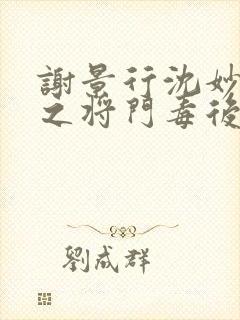 謝景行沈妙
之將門毒後
劉成群